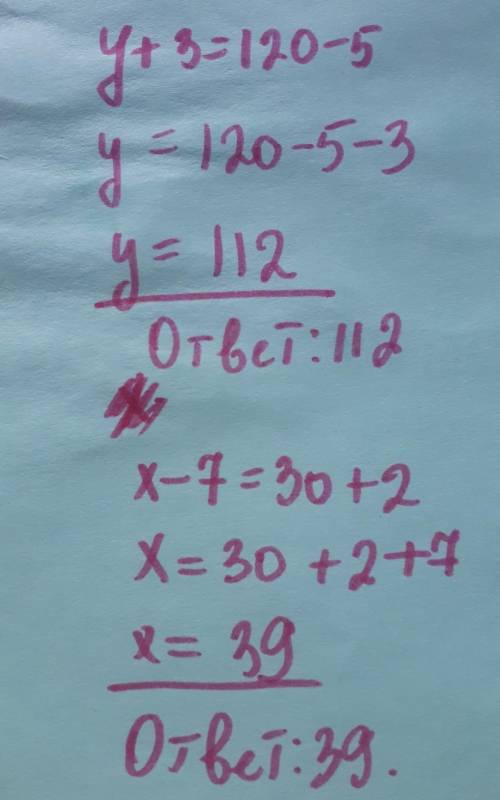 y+3=120-5
y=120-5-3
y=112
Ответ:112
x-7=30+2
x=30+2+7
x=39
Ответ:39.